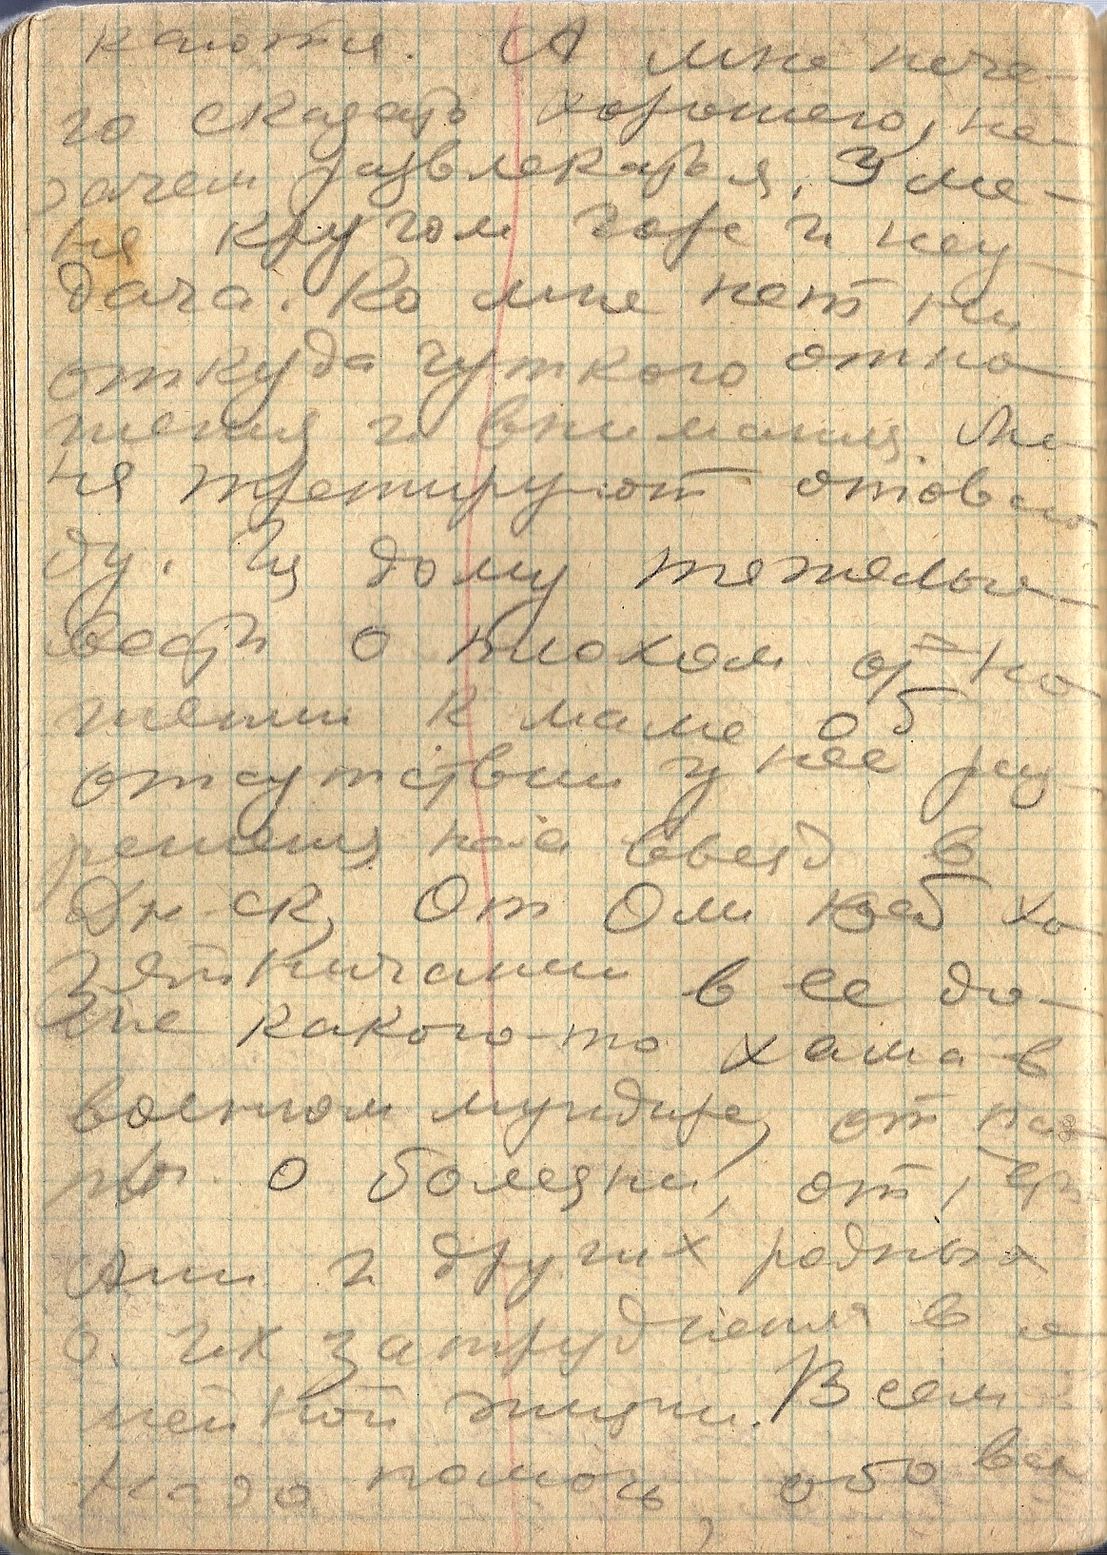 каются. А мне нече-
го сказать хорошего, не-
зачем развлекаться. У ме-
ня кругом горе и неу-
дача. Ко мне нет ни
откуда чуткого отно-
шения и внимания. Ме-
ня третируют отовсю
ду. Из дому тяжелые
вести о плохом отно
шении к маме об
отсутствии у нее раз-
решения на въезд в
Дн-ск, От Оли
в ее до-
ме какого-то хама в
военном мундире, от па-
пы о болезни, от
Ани и других родных
о их затруднения в се
мейной жизни. Всем
надо помочь, обо всех